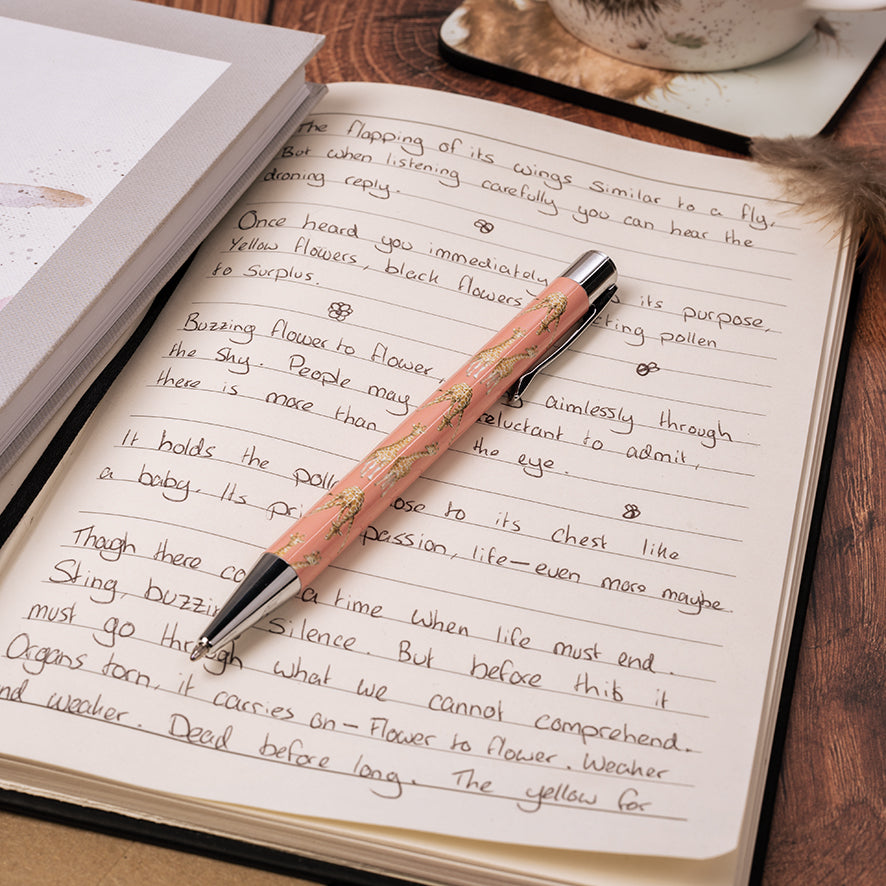 The flapping of its wings similar to a fly,
But when listening carefully you can hear the
droning reply.
Once heard you immediately its purpose,
Yellow flowers, black flowers pollen
to surplus.
Buzzing flower to flower, aimlessly through
the sky. People may reluctant to admit,
there is more than the eye.
It holds the close to its chest like
a baby. Its passion, life—even more maybe.
Though there a time when life must end.
Sting, silence. But before this it
must go through what we cannot comprehend.
Organs torn, it carries on – Flower to flower. Weaker
and weaker. Dead before long. The yellow for